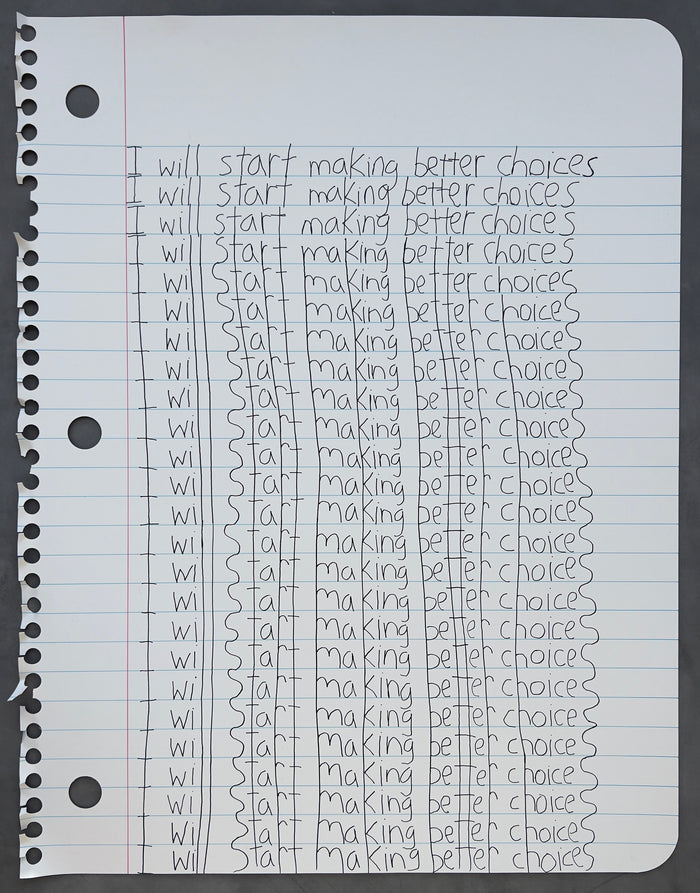 I will start making better choices
I will start making better choices
I will start making better choices
I will start making better choices
I will start making better choices
I will start making better choices
I will start making better choices
I will start making better choices
I will start making better choices
I will start making better choices
I will start making better choices
I will start making better choices
I will start making better choices
I will start making better choices
I will start making better choices
I will start making better choices
I will start making better choices
I will start making better choices
I will start making better choices
I will start making better choices
I will start making better choices
I will start making better choices
I will start making better choices
I will start making better choices
I will start making better choices